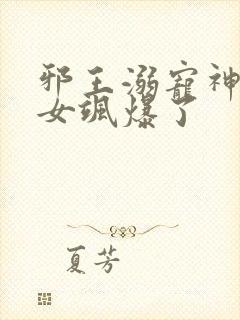 邪王溺寵神
女颯爆了
夏芳